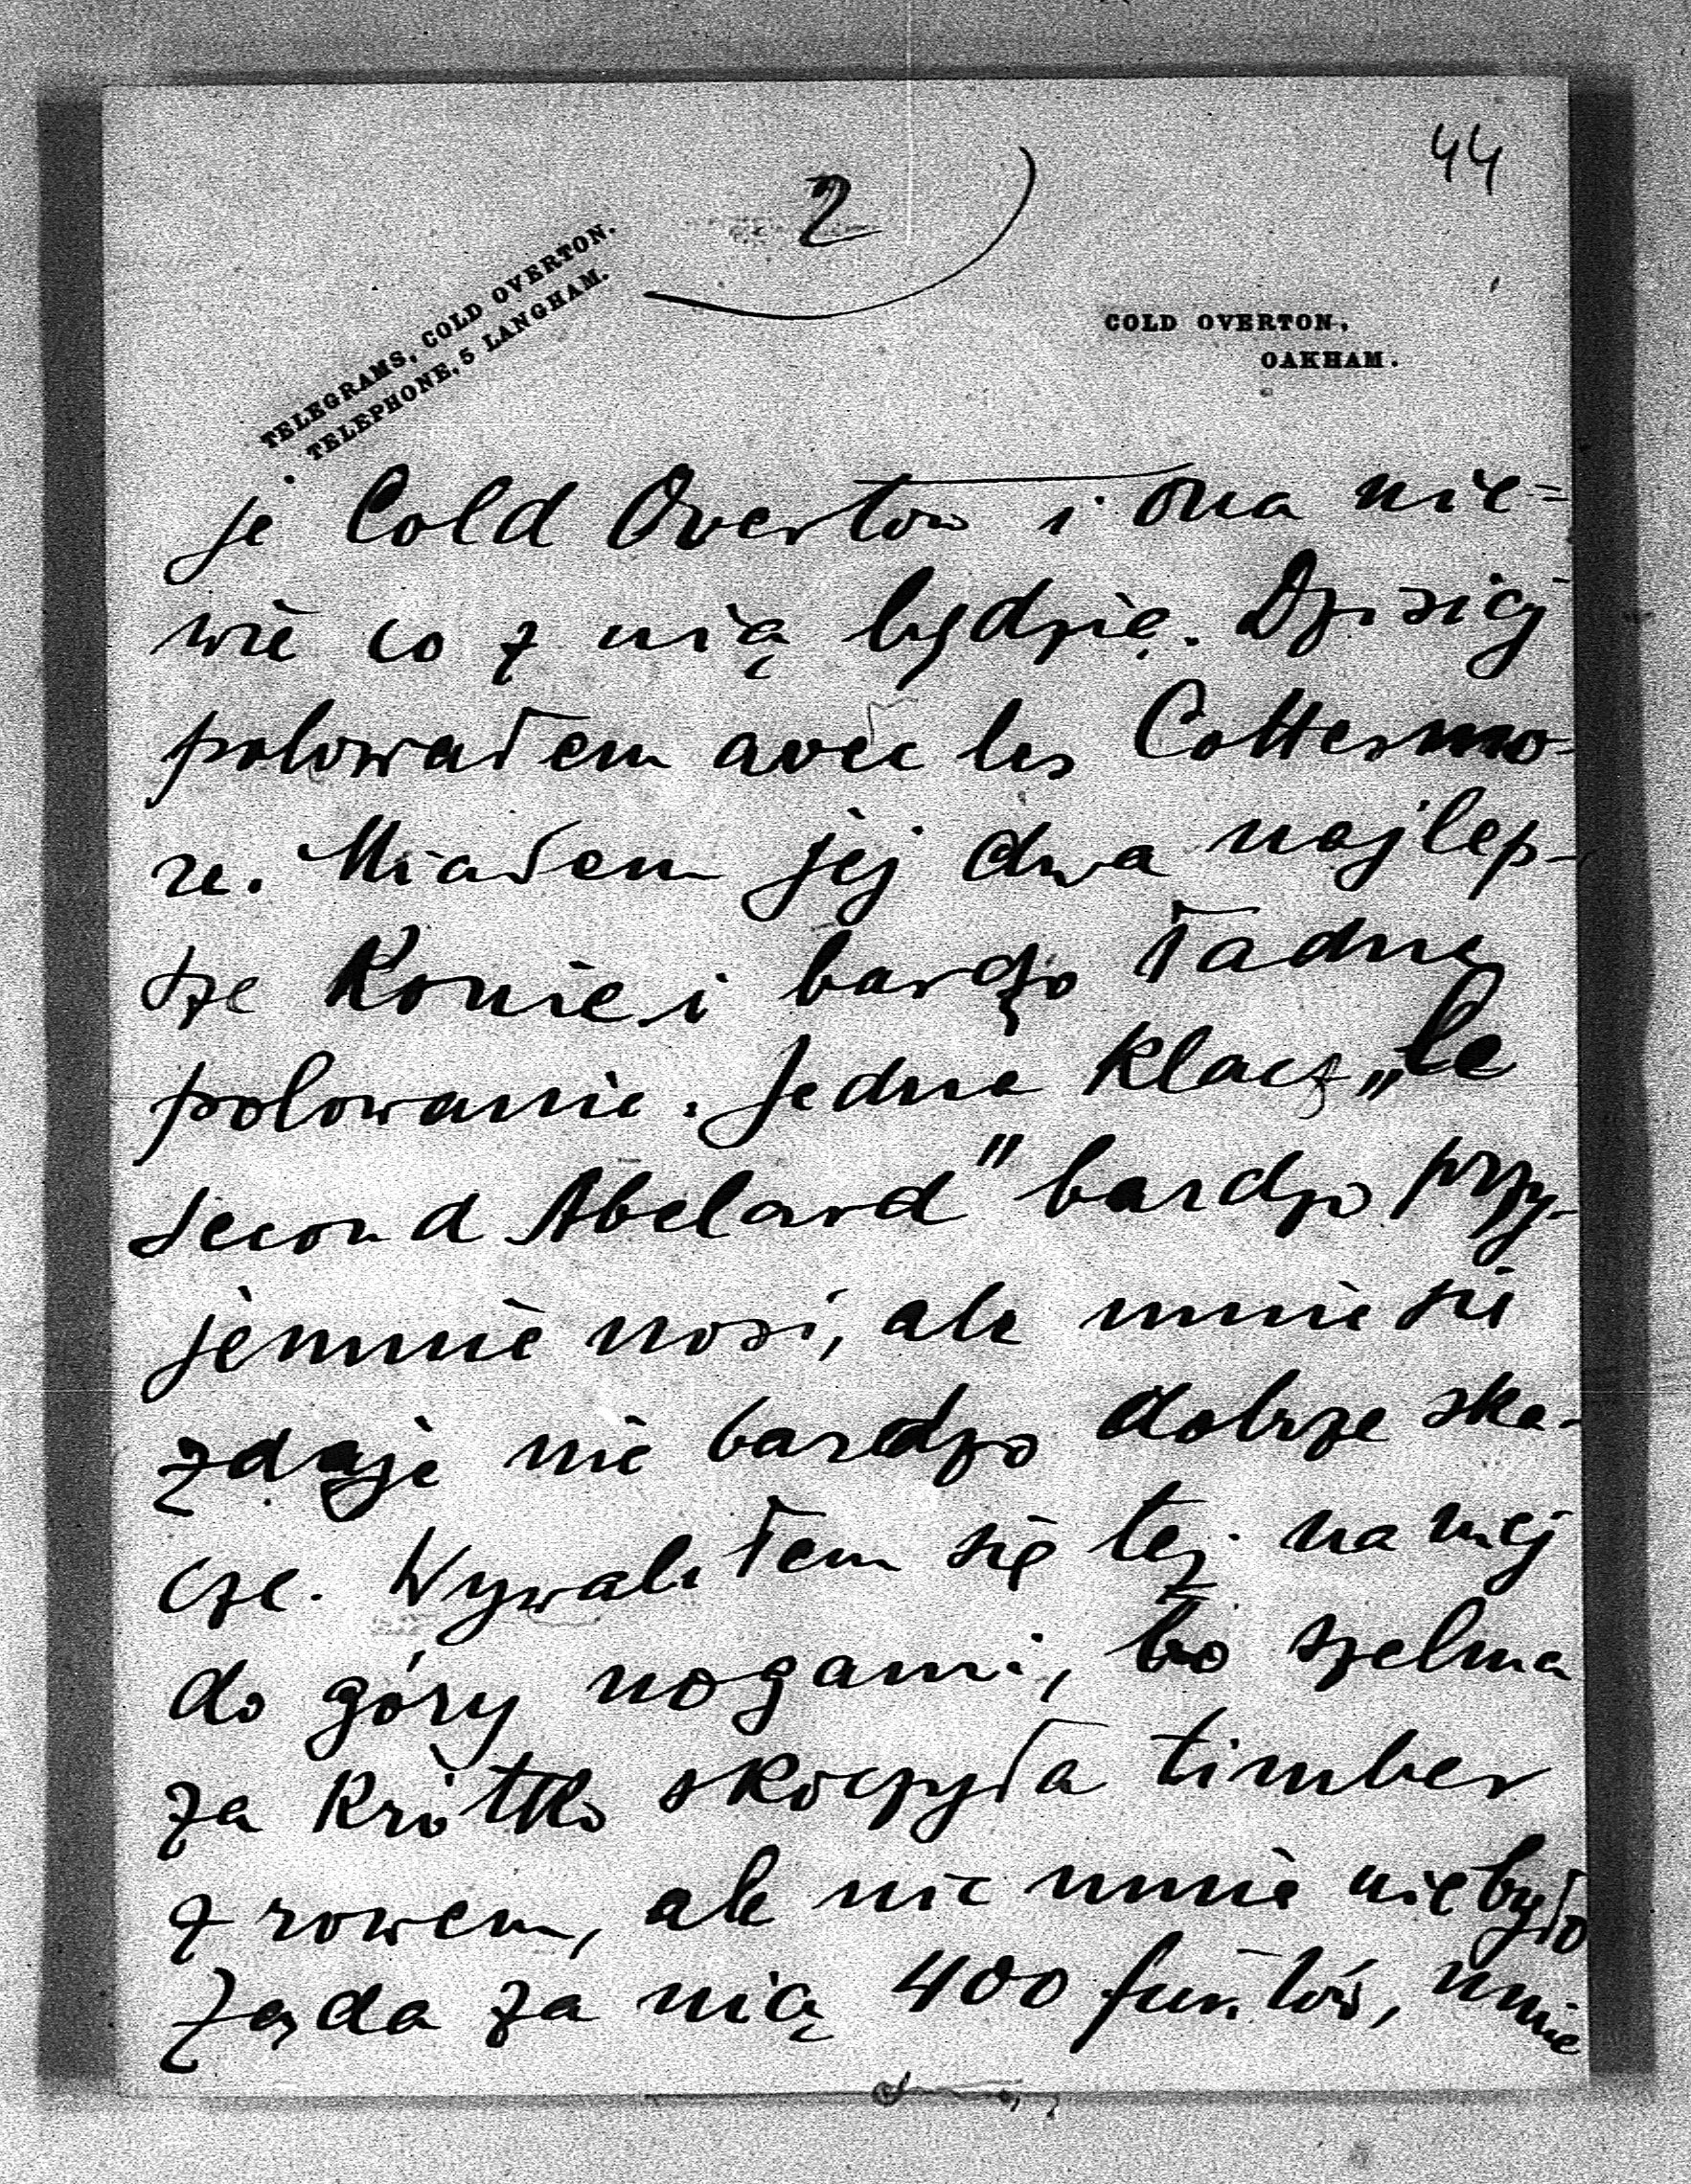 44
2
TELEGRAMS, COLD OVERTON.
TELEPHONE, 5 LANGHAM.
COLD OVERTON,
OAKHAM.
je Cold Overton i ona nie=
wie co z nią będzie. Dzisiej
polowałem avec les Cottesmo-
re. Miałem jej dwa najlep-
sze Konie i bardzo ładne
polowanie. Jedna Klacz „le
second Abelard" bardzo przy-
jemnie nosi, ale mnie sie
zdaje nie bardzo dobrze ska-
cze. Wywaliłem się też na niej
do góry nogami, bo szelma
za Krótko skoczyła timber
z rowem, ale nic mnie niebyło
Żąda za nią 400 funtów, mnie